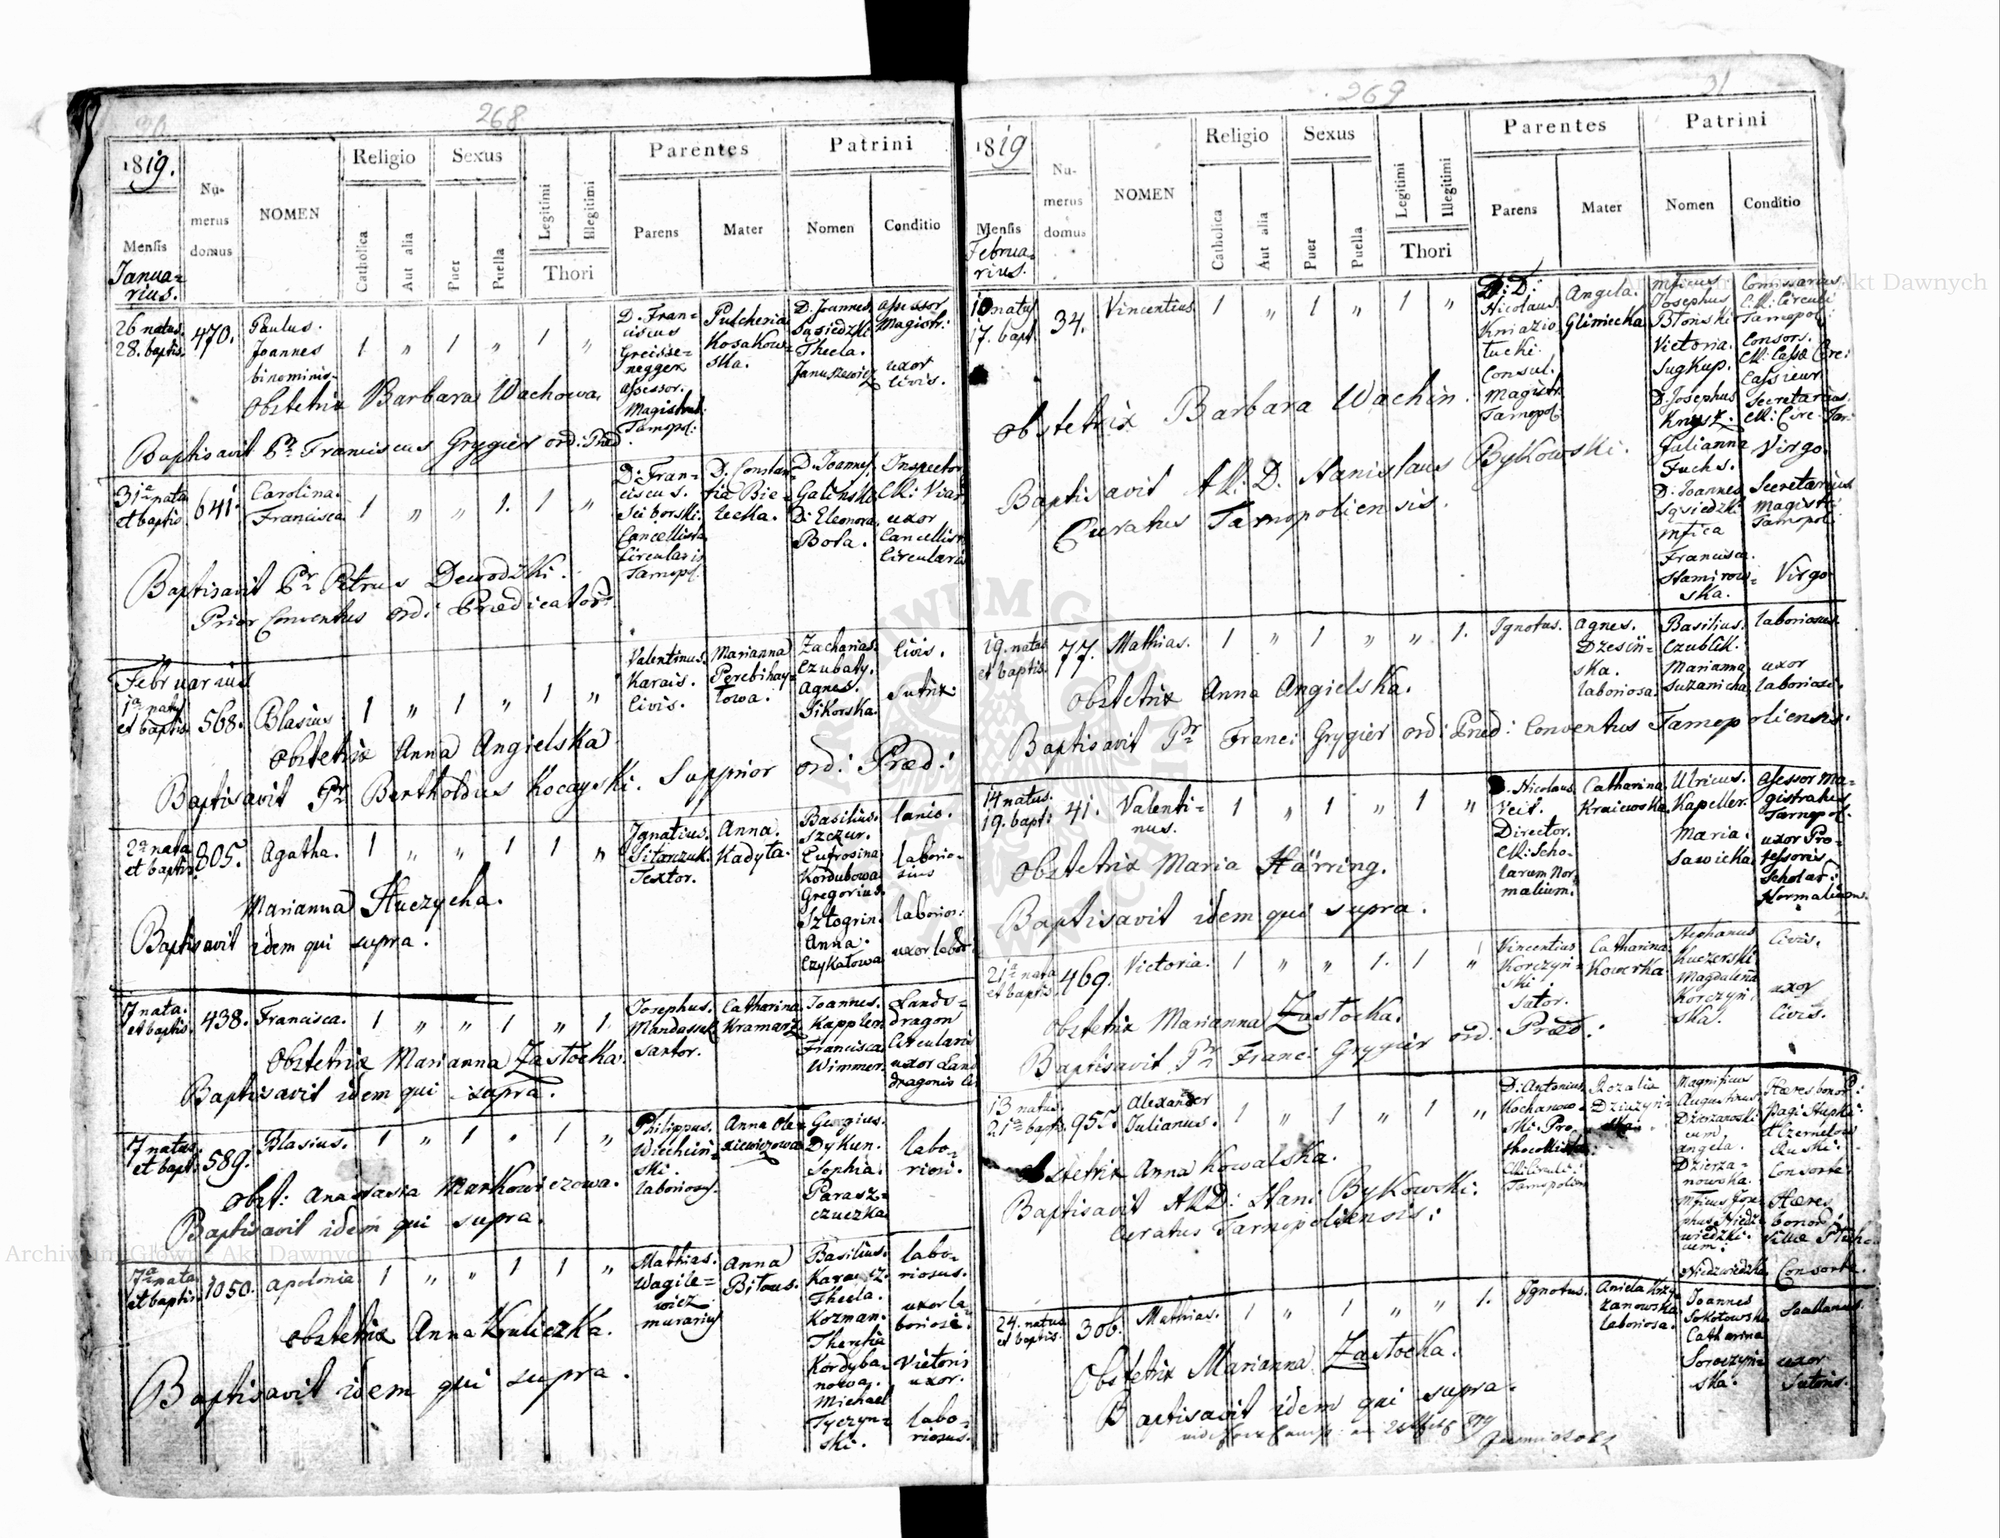 30.
268
1819.
Mensis
Januarius.
Numerus domus
NOMEN
Religio
Catholica
Aut alia
Sexus
Puer
Puella
Legitimi
Illegitimi
Thori
Parentes
Parens
Mater
Patrini
Nomen
Conditio
26 natus.
28. baptis.
470.
Paulus.
Joannes
binominis.
1 " 1 " 1 "
D. Fran=
ciscus
Greisse=
negger
assessor.
Magistrat:
Tarnopol:
Pulcheria
Kosakow=
ska.
D. Joannes
Sąsiedzki
Thecla.
Januszewicz
assessor
Magistr:
uxor
civis.
Obstetrix Barbara Wachowa.
Baptisavit Pr Franciscus Grygier ord: Præd
31a nata
et baptis.
641.
Carolina.
Francisca
1 " " 1. 1 "
D: Fran=
ciscus.
Sciborski.
Cancellista
Circularis
Tarnopl.
D: Constan
tia Bie=
lecka.
D. Joannes
Galinski
D: Eleonora
Bota.
Inspector
C.R: Viar
uxor
Cancellist
Circularis
Baptisavit Pr Petrus Dewodzki.
Prior Conventus ord: Prædicator:
Februarius
1a natus
et baptis.
568.
Blasius.
1 " 1 " 1 "
Valentinus.
Karais.
Civis.
Marianna
Perebihay=
lowa.
Zacharias.
Czubaty.
Agnes.
Sikorska.
Civis.
Sutrix:
Obstetrix Anna Angielska
Baptisavit Pr Bertholdus Kocayski. Supprior ord: Præd:
2a nata
et baptis.
805.
Agatha.
1 " " 1 1 "
Ignatius.
Sitarczuk.
Textor.
Anna.
Kadyta.
Basilius.
Szczur.
Eufrosina
Kordubowa
Gregorius.
Sztogrin.
Anna.
Czykałowa
lanio.
laborio=
sius
laborios:
uxor labor
Marianna Huczycha.
Baptisavit idem qui supra.
7 nata.
et baptis.
438.
Francisca.
1 " " 1 " 1.
Josephus.
Mandassuk
Sartor.
Catharina
Kramarz
Joannes.
Kappler.
Francisca
Wimmer.
Lands=
dragon
Circularis
uxor Land
dragonis
Obstetrix Marianna Zastocka.
Baptisavit idem qui supra.
7 natus.
et bapt.
589.
Blasius.
1 " 1 " 1 "
Philippus.
Wiechciń=
ski.
laboriosus.
Anna Ole=
xiewiczowa
Georgius.
Dykun.
Sophia.
Parasz=
czuczka
labo=
riosi.
Obst: Anastasia Markowiczowa.
Baptisavit idem qui supra.
7a nata
et baptis.
1050.
Apolonia
1 " " 1 1 "
Mathias.
Wagile=
wicz
murarius
Anna
Bitous.
Basilius.
Karasz.
Thecla.
Kozman.
Theresia
Kordyba=
nowa.
Michael
Tyczyn=
ski.
labo=
riosus.
uxor la=
boriosi.
Vietoris
uxor.
labo=
riosus.
Obstetrix Anna Kruliczka.
Baptisavit idem qui supra.
269
31
1819
Mensis
Februa=
rius.
Numerus domus
NOMEN
Religio
Catholica
Aut alia
Sexus
Puer
Puella
Legitimi
Illegitimi
Thori
Parentes
Parens
Mater
Patrini
Nomen
Conditio
10 natus
17. bapt.
34.
Vincentius.
1 " 1 " 1 "
D: D:
Nicolaus.
Kniazio
łucki.
Consul.
Magistr.
Tarnopol.
Angela.
Gliniecka
Mficus
Josephus
Błonski
Victoria.
Sugkup.
D. Josephus
Knysz.
Julianna
Fuchs.
D. Joannes
Sąsiedzki
Mfica
Francisca.
Hamirow=
ska.
Comissarius
C.R: Circuli
Tarnopol.
Consors.
C.R: Cassæ Circ:
Cassieur
Secretarius.
C.R: Circ: Tar:
Virgo.
Secretarius
Magistr:
Tarnopol:
Virgo
Obstetrix Barbara Wachin.
Baptisavit A.R: D. Stanislaus Bykowski.
Curatus Tarnopoliensis.
19. natus
et baptis.
77.
Mathias.
1 " 1 " " 1.
Ignotus.
Agnes.
Dzesiń=
ska.
laboriosa.
Basilius.
Czublik.
Marianna
Suzanicha
laboriosus.
uxor
laboriosi.
Obstetrix Anna Angielska.
Baptisavit Pr Franc: Grygier ord: Præd: Conventus Tarnopoliensis:
14 natus.
19. bapt:
41.
Valenti=
nus.
1 " 1 " 1 "
Nicolaus.
Veit.
Director.
C.R: Scho=
larum Nor
malium.
Catharina
Kraiewska
Ulricus.
Kapeller.
Maria.
Sawicka
Assessor Ma=
gistratus
Tarnopol.
uxor Pro=
fessoris
Scholar:
Normalium.
Obstetrix Maria Härring.
Baptisavit idem qui supra.
21a nata
et baptis.
469.
Victoria.
1 " " 1. 1 "
Vincentius
Korczyń=
ski.
Sator.
Catharina
Kowerka
Stephanus
Kuczerski
Magdalena
Korczyń:
ska.
Civis.
uxor
Civis.
Obstetrix Marianna Zastocka.
Baptisavit Pr Franc: Grygier ord: Præd:
13 natus
21a baptis.
95.
Alexander
Julianus.
1 " 1 " 1 "
D: Antonius
Kochanow=
ski Pro=
thocollista
C.R. Circuli:
Tarnopolien
Rozalia
Dziuzyń=
ska.
Magnificus
Augustinus
Dzierzanowski
cum
Angela.
Dzierza=
nowska.
Mficus Jose=
phus Niedź=
wiedzki.
cum:
Niedzwiedzka
Hæres bonor:
pagi Stupki:
et Czernelow
Ruski:
Consorte.
Hæres
bonor:
Villæ
Consorte.
Obstetrix Anna Kowalska.
Baptisavit A.R.D: Stani: Bykowski.
Curatus Tarnopoliensis:
24. natus
et baptis.
306.
Mathias.
1 " 1 " " 1.
Ignotus.
Aniela Krzy=
zanowska
laboriosa.
Joannes
Sokołowski
Catharina
Soroczyn=
ska.
Famulanus.
uxor
Sutoris.
Obstetrix Marianna Zastocka.
Baptisavit idem qui supra.
Archiwum Główne Akt Dawnych
Archiwum Główne Akt Dawnych
ARCHIWUM GŁÓWNE AKT DAWNYCH